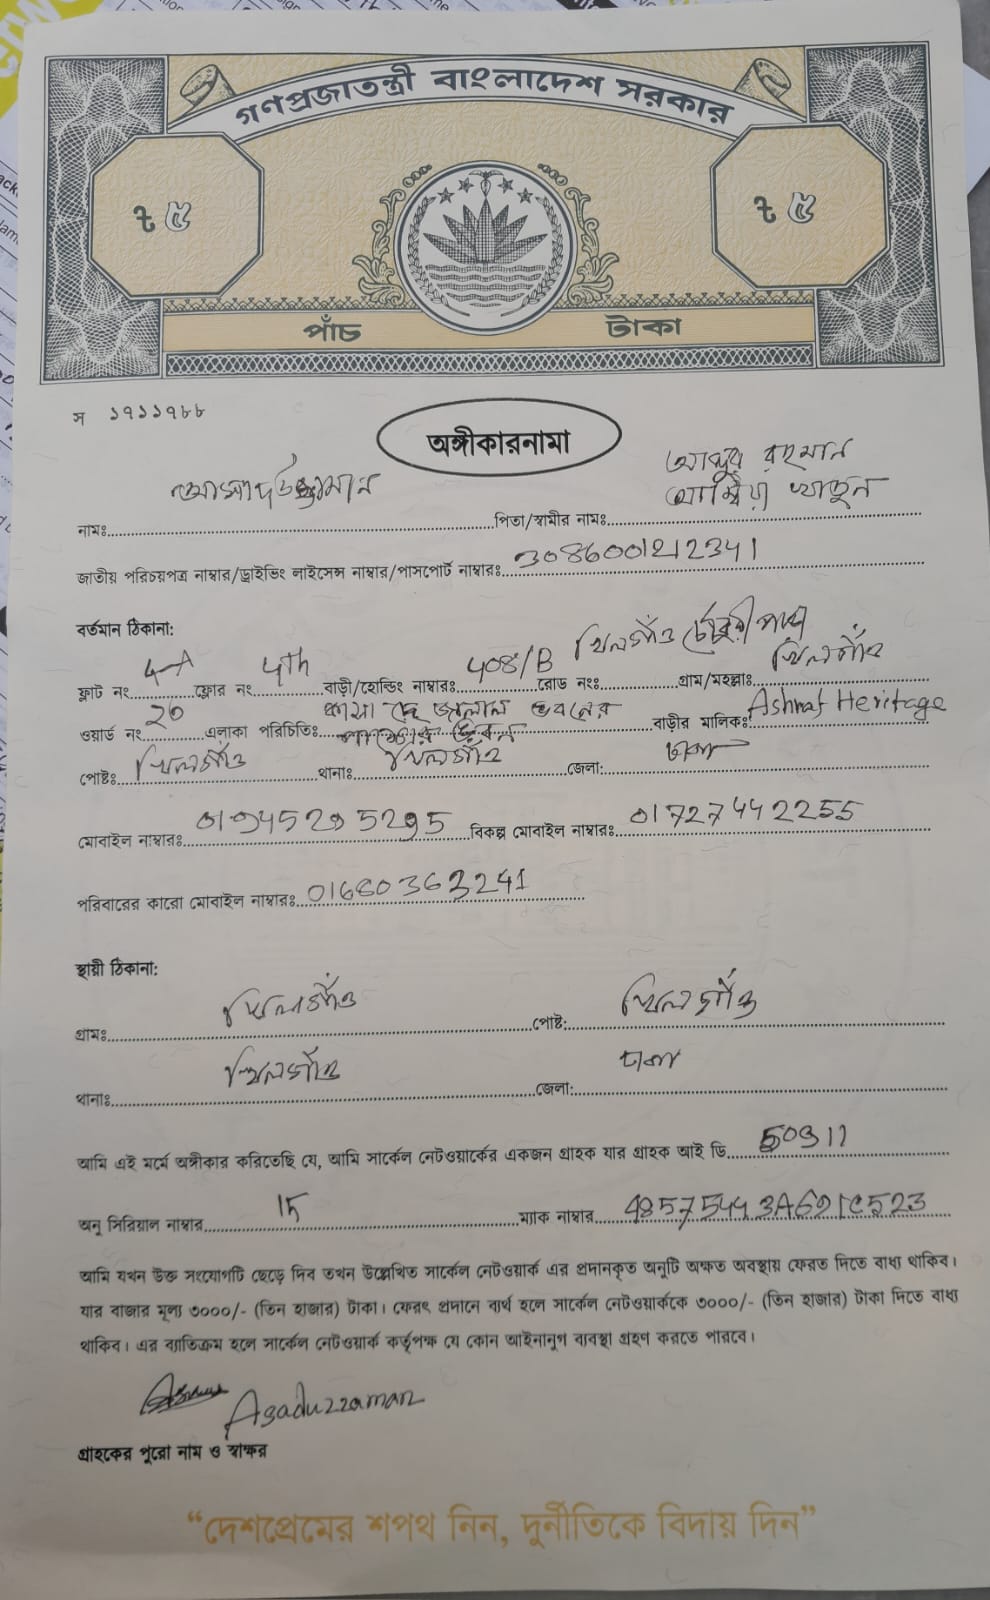 গণপ্রজাতন্ত্রী বাংলাদেশ সরকার
৳ ৫ ৳ ৫
পাঁচ টাকা
স ১৭১১৭৮৮
অঙ্গীকারনামা
নামঃ আসাদউজ্জামান পিতা/স্বামীর নামঃ আব্দুর রহমান
আম্বিয়া খাতুন
জাতীয় পরিচয়পত্র নাম্বার/ড্রাইভিং লাইসেন্স নাম্বার/পাসপোর্ট নাম্বারঃ 3086001212341
বর্তমান ঠিকানা:
ফ্লাট নং 4-A ফ্লোর নং 4th বাড়ী/হোল্ডিং নাম্বারঃ 408/B রোড নংঃ খিলগাঁও চৌধুরী পাড়া গ্রাম/মহল্লাঃ খিলগাঁও
ওয়ার্ড নং 26 এলাকা পরিচিতিঃ জালাল ভবনের বাড়ীর মালিকঃ Ashraf Heritage
পোষ্টঃ খিলগাঁও থানাঃ খিলগাঁও জেলা: ঢাকা
মোবাইল নাম্বারঃ 01945295295 বিকল্প মোবাইল নাম্বারঃ 01727442255
পরিবারের কারো মোবাইল নাম্বারঃ 01680363241
স্থায়ী ঠিকানা:
গ্রামঃ খিলগাঁও পোষ্ট: খিলগাঁও
থানাঃ খিলগাঁও জেলা: ঢাকা
আমি এই মর্মে অঙ্গীকার করিতেছি যে, আমি সার্কেল নেটওয়ার্কের একজন গ্রাহক যার গ্রাহক আই ডি 50911
অনু সিরিয়াল নাম্বার 15 ম্যাক নাম্বার 485754443A621C523
আমি যখন উক্ত সংযোগটি ছেড়ে দিব তখন উল্লেখিত সার্কেল নেটওয়ার্ক এর প্রদানকৃত অনুটি অক্ষত অবস্থায় ফেরত দিতে বাধ্য থাকিব।
যার বাজার মূল্য ৩০০০/- (তিন হাজার) টাকা। ফেরৎ প্রদানে ব্যর্থ হলে সার্কেল নেটওয়ার্ককে ৩০০০/- (তিন হাজার) টাকা দিতে বাধ্য
থাকিব। এর ব্যতিক্রম হলে সার্কেল নেটওয়ার্ক কর্তৃপক্ষ যে কোন আইনানুগ ব্যবস্থা গ্রহণ করতে পারবে।
Asaduzzaman
গ্রাহকের পুরো নাম ও স্বাক্ষর
“দেশপ্রেমের শপথ নিন, দুর্নীতিকে বিদায় দিন”